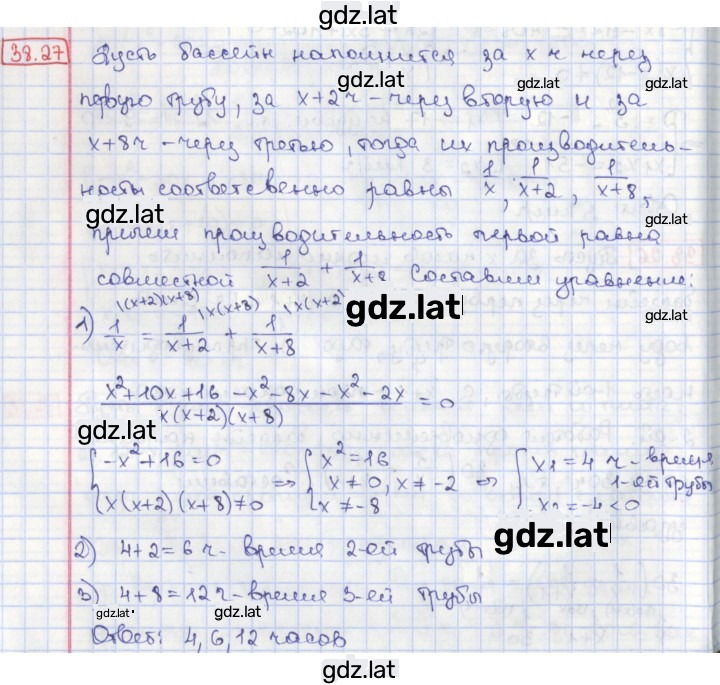 gdz.lat
38.27 Пусть бассейн наполнится за x ч через
gdz.lat gdz.lat
первую трубу, за x+2 ч – через вторую и за
x+8 ч – через третью, тогда их производитель-
ности соответсвенно равны 1/x, 1/(x+2), 1/(x+8),
gdz.lat gdz.lat
причем производительность первой равна
совместной 1/(x+2) + 1/(x+8) Составим уравнение:
gdz.lat gdz.lat
1) 1/x \(x+2)(x+8) = 1/(x+2) \x(x+8) + 1/(x+8) \x(x+2)
(x²+10x+16-x²-8x-x²-2x)/(x(x+2)(x+8)) = 0
gdz.lat
{-x²+16=0 {x²=16 {x₁=4 ч - время
x(x+2)(x+8)≠0 ⇒ x≠0, x≠-2 ⇒ 1-ой трубы
x≠-8 x₂=-4<0
gdz.lat gdz.lat
2) 4+2=6 ч - время 2-ой трубы
3) 4+8=12 ч - время 3-ей трубы
gdz.lat gdz.lat
Ответ: 4, 6, 12 часов
gdz.lat